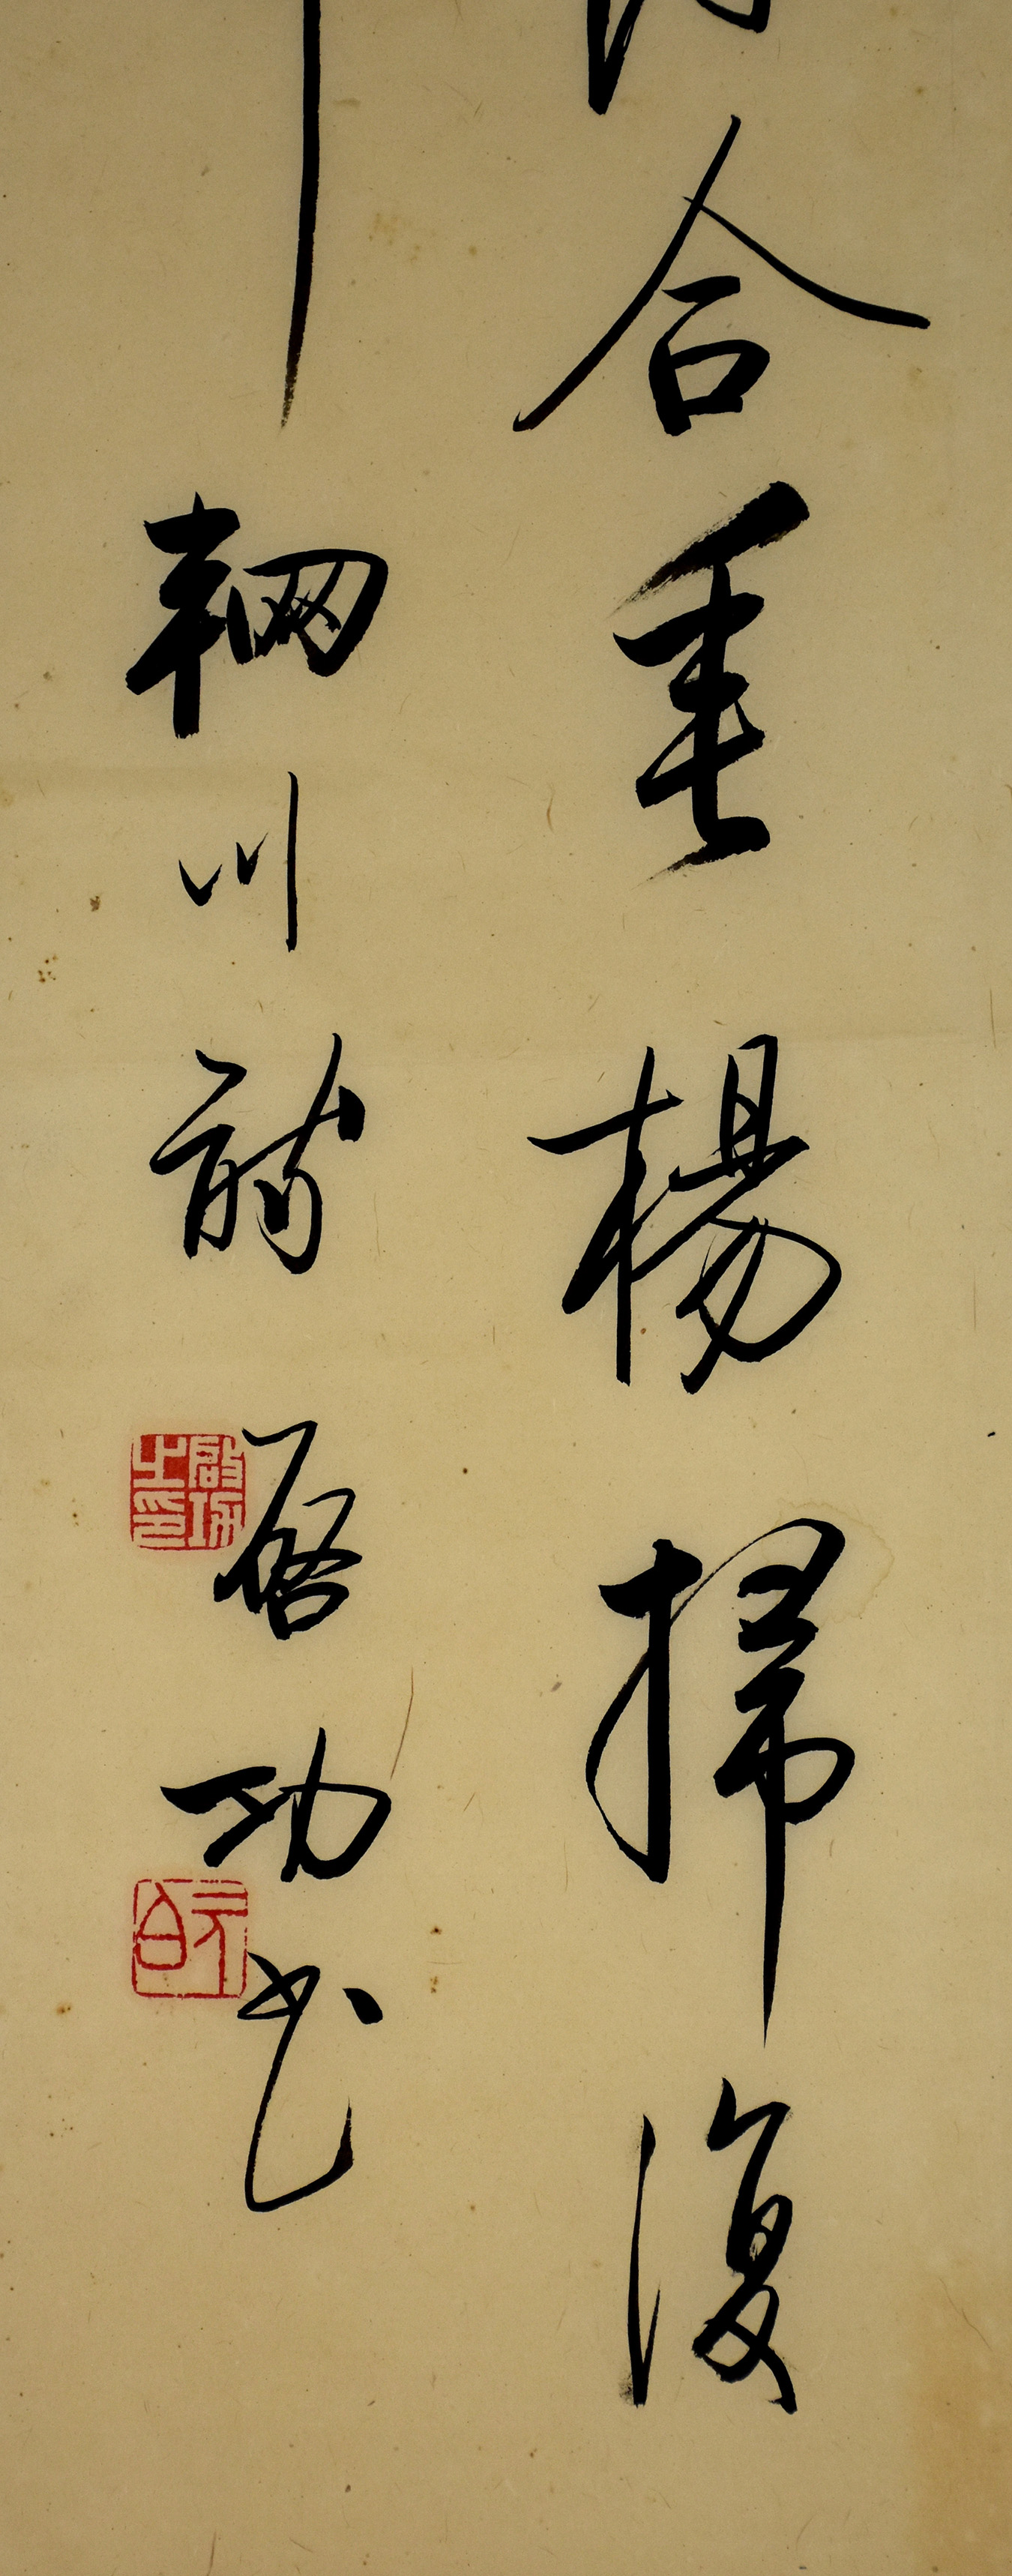 合垂楊掃復
輞川
啓功書
啓功之印
元白